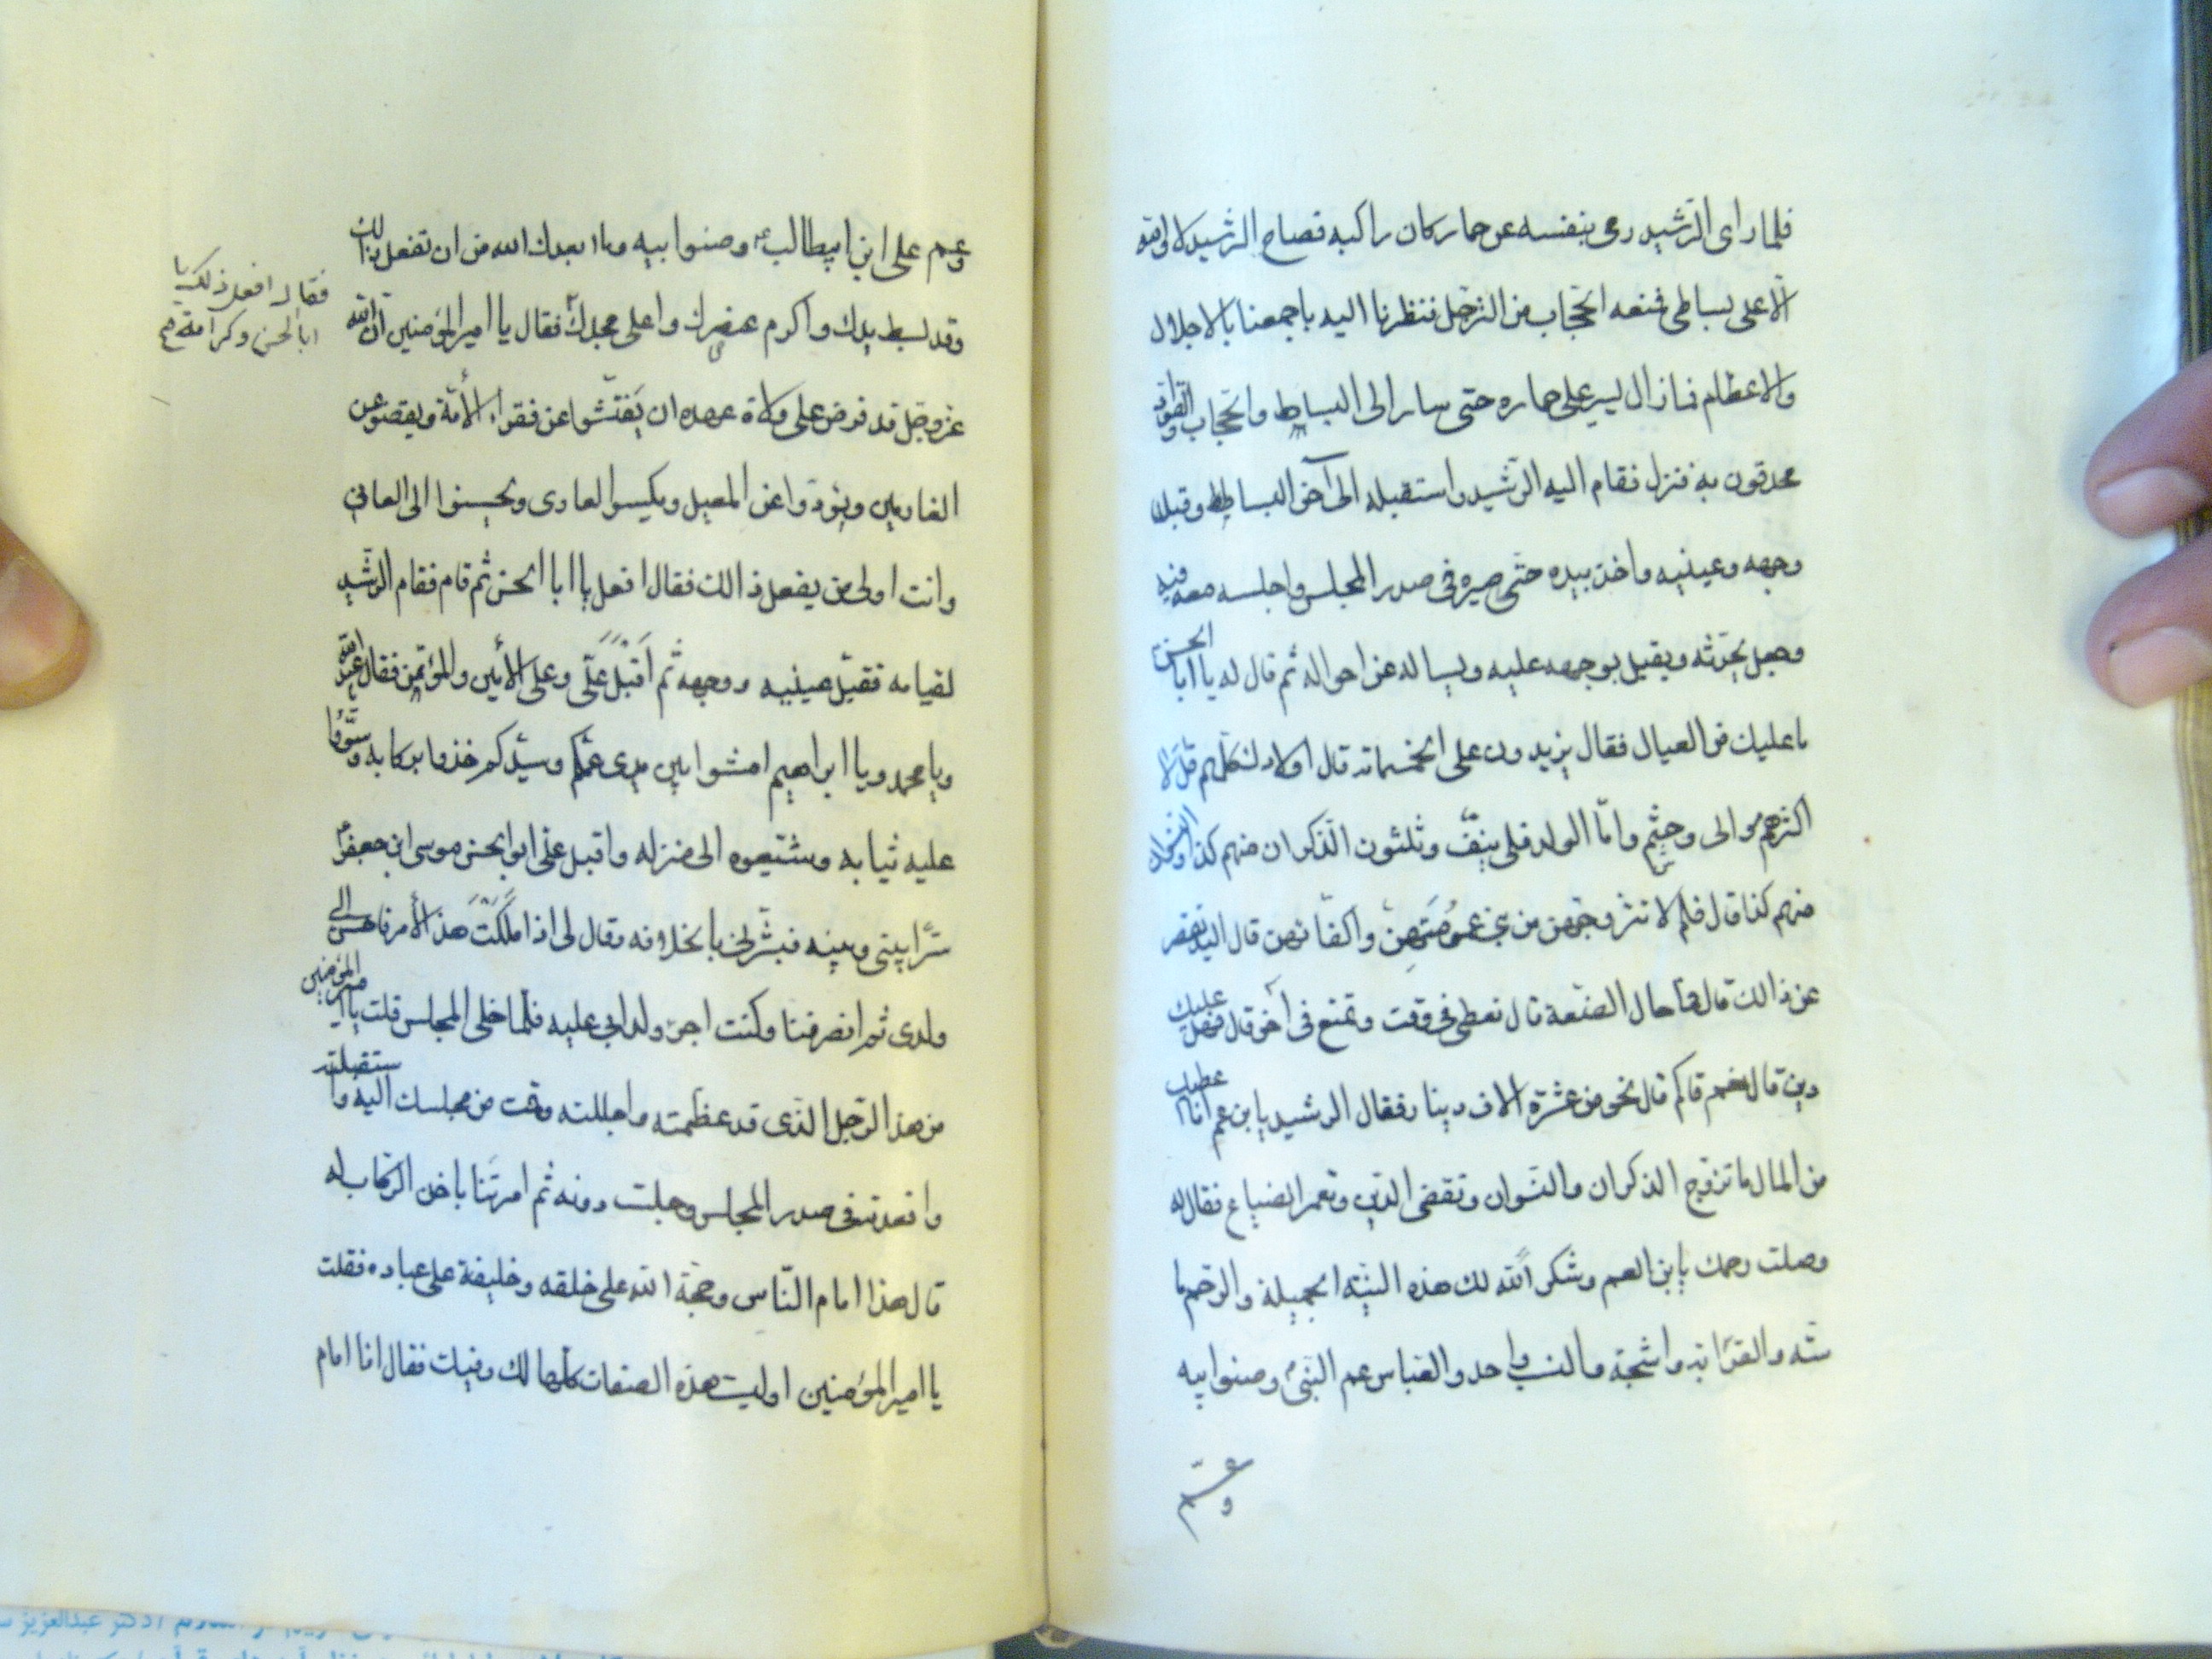 فلما رای الرّشید رمی بنفسه عن حمار کان راکبه فصاح الرّشید لا والله
الّا علی بساطی فمنعه الحجّاب من الترجّل فنظرنا الیه باجمعنا بالاجلال
والاعظام فما زال یسیر علی حماره حتی سار الی البساط والحجّاب والقوّاد
محدقون به فنزل فقام الیه الرّشید واستقبله الی آخر البساط وقبل
وجهه وعینیه واخذ بیده حتّی صیره فی صدر المجلس واجلسه معه فیه
وجعل یحدّثه ویقبل بوجهه علیه ویساله عن احواله ثم قال له یا ابا الحسن
ما علیك من العیال فقال یزیدون علی الخمسمائة قال اولاد لك کلّهم قال لا
اکثرهم موالی وحشم وامّا الولد فلی نیّف وثلثون الذّکران منهم کذا والنسوان
منهم کذا قال فلم لا تتزوّجهن من بنی عمومتهنّ واکفّائهن قال الید تقصر
عن ذالك قال فما حال الضّیعة قال تعطی فی وقت وتمنع فی آخر قال فهل علیك
دین قال نعم قال کم قال نحو من عشرة الاف دینار فقال الرشید یا بن عم انا اعطیك
من المال ما تزوّج الذکران والنّسوان وتقضی الدّین وتعمر الضیاع فقال له
وصلت رحمك یا بن العم وشکر الله لك هذه النیّة الجمیلة والرّحم ما
سّة والقرابة واشجة والنسب واحد والعبّاس عم النّبی وصنوابیه
وعمّ
وعم علی ابن ابیطالب وصنوابیه وما ابعدك الله من ان تفعل ذالك
وقد بسط یدك واکرم عنصرك واعلی مجدك فقال یا امیر المؤمنین انّ الله
فقال افعل ذلک یا
ابا الحسن وکرامة صح
عزوجّل قد فرض علی ولاة عهده ان یَفتّشوا عن فقراء الأمّة ویقضوا عن
الغارمین ویؤدّوا عن المعیل ویکیسوا لعاری ویحسنوا الی العانی
وانت اولی من یفعل ذالك فقال افعل یا ابا الحسن ثم قام فقام الرّشید
لقیامه فقبّل عینیه ووجهه ثم اَقْبَلَ علَیّ وعلی الأمین والمؤتمن فقال یا عبد الله
ویا محمد ویا ابراهیم امشوا بین یدی عمّکم وسیّدکم خذوا برکابه وسَوّوا
علیه ثیابه وشیّعوه الی منزله واقبل علیّ ابو الحسن موسی ابن جعفر
سّرا بینی وبینه فبشّرنی بالخلافه وقال لی اذا مَلَکْتَ هذ الأمر فاحسن الی
ولدی ثم انصرفنا وکنت اجرء ولد ابی علیه فلمّا خلی المجلس قلت یا امیر المؤمنین
من هذ الرّجل الذّی قد عظّمته واجللته وقمت من مجلسك الیه واستقبلته
واقعدته فی صدر المجلس وجلست دونه ثم امرتَنا باخذ الرّکاب له
قال هذا امام النّاس وحجّة الله علی خلقه وخلیفة علی عباده فقلت
یا امیر المؤمنین اولیست هذه الصفات کلّها لك وفیك فقال انا امام